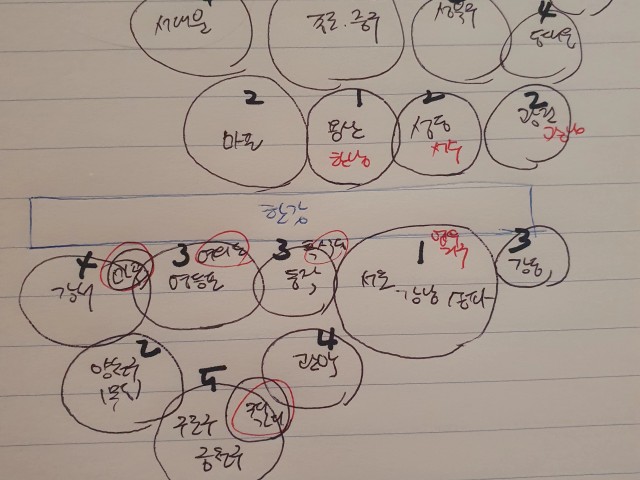 서대문
종로.중구
성북구
4
동대문
2
마포
1
용산
한남
2
성동
성수
2
광진
광장
한강
4
강서
마곡
3
여의도
영등포
3
흑석
동작
1
압구
서초
강남
송파
3
강동
2
양천구
(목동)
4
관악
5
구로구
금천구